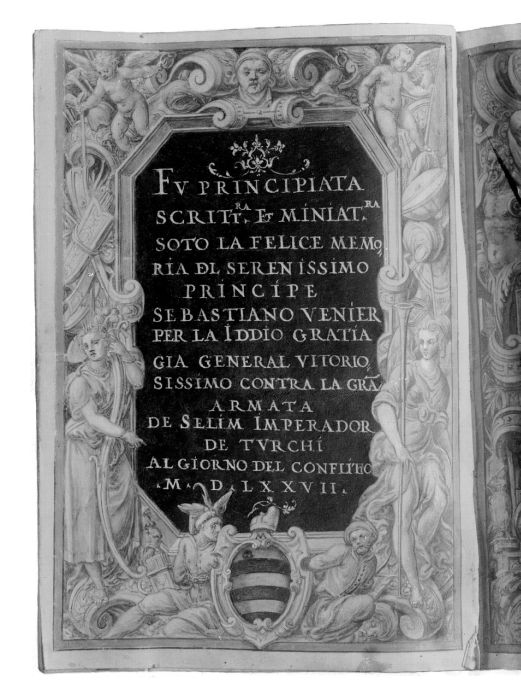 FV PRINCIPIATA
SCRITT.RA, Et MINIAT.RA
SOTO LA FELICE MEMO,
RIA DL SERENISSIMO
PRINCIPE
SEBASTIANO VENIER
PER LA IDDIO GRATIA
GIA GENERAL VITORIO,
SISSIMO CONTRA LA GRÃ
ARMATA
DE SELIM IMPERADOR
DE TVRCHI
AL GIORNO DEL CONFLITTO
.M.D.LXXVII.